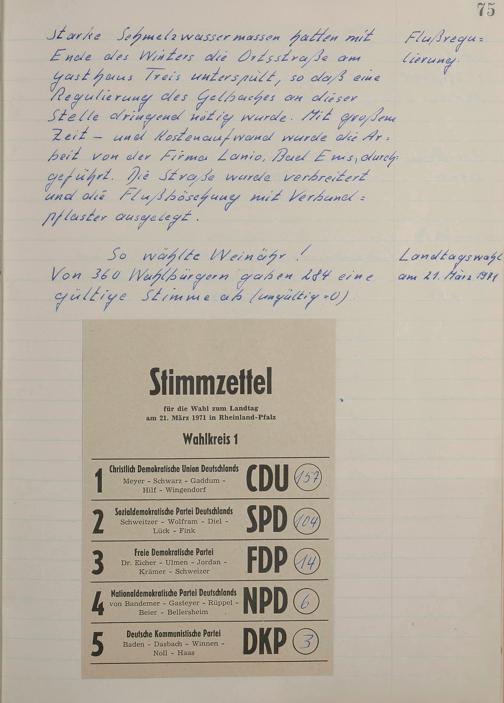 75
Starke Schmelzwassermassen hatten mit
Ende des Winters die Ortsstraße am
Gasthaus Treis unterspült, so daß eine
Regulierung des Gelbaches an dieser
Stelle dringend nötig wurde. Mit großem
Zeit- und Kostenaufwand wurde die Ar=
beit von der Firma Lanio, Bad Ems, durch-
geführt. Die Straße wurde verbreitert
und die Flußböschung mit Verbund=
pflaster ausgelegt.
Flußregu=
lierung.
So wählte Weinähr!
Von 360 Wahlbürgern gaben 284 eine
gültige Stimme ab (ungültig=0)
Landtagswahl
am 21. März 1971
Stimmzettel
für die Wahl zum Landtag
am 21. März 1971 in Rheinland-Pfalz
Wahlkreis 1
1 Christlich Demokratische Union Deutschlands CDU 157
Meyer - Schwarz - Gaddum -
Hilf - Wingendorf
2 Sozialdemokratische Partei Deutschlands SPD 104
Schweitzer - Wolfram - Diel -
Lück - Fink
3 Freie Demokratische Partei FDP 14
Dr. Eicher - Ulmen - Jordan -
Krämer - Schweizer
4 Nationaldemokratische Partei Deutschlands NPD 6
von Bandemer - Gasteyer - Rüppel -
Beier - Bellersheim
5 Deutsche Kommunistische Partei DKP 3
Baden - Dasbach - Winnen -
Noll - Haas